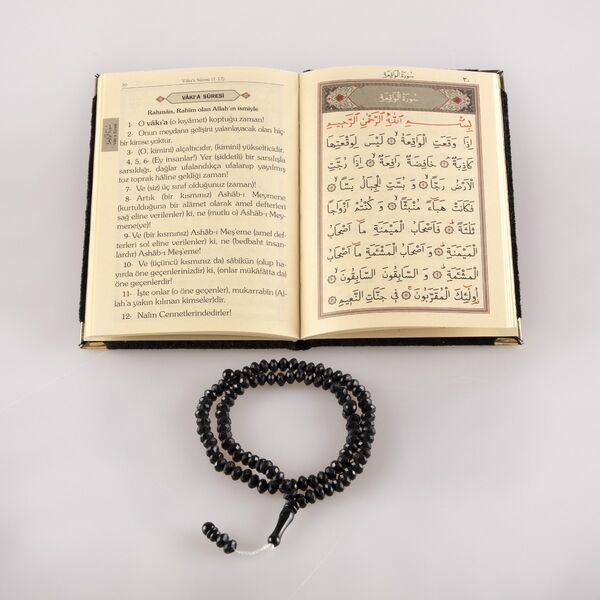 30
Vâkı'a Sûresi (1-12)
VÂKI'A SÛRESİ
Rahmân, Rahîm olan Allah'ın ismiyle
1- O vâkı'a (o kıyâmet) koptuğu zaman!
2- Onun meydana gelişini yalanlayacak olan hiç-
bir kimse yoktur.
3- (O, kimini) alçaltıcıdır, (kimini) yükselticidir.
4, 5, 6- (Ey insanlar!) Yer (şiddetli) bir sarsılışla
sarsıldığı, dağlar ufalandıkça ufalanıp yayılmış
toz toprak hâline geldiği zaman!
7- Ve (siz) üç sınıf olduğunuz (zaman)!
8- Artık (bir kısmınız) Ashâb-ı Meymene
(kurtulduğuna bir alâmet olarak amel defterleri
sağ eline verilenler) ki, ne (mutlu o) Ashâb-ı Mey-
mene(ye)!
9- Ve (bir kısmınız) Ashâb-ı Meş'eme (amel def-
terleri sol eline verilenler) ki, ne (bedbaht insan-
lardır) Ashâb-ı Meş'eme!
10- Ve (üçüncü kısmınız da) sâbikûn (olup ha-
yırda öne geçenlerinizdir) ki, (onlar mükâfâtta da)
öne geçenlerdir!
11- İşte onlar (o öne geçenler), mukarrabîn (Al-
lah'a yakın kılınan kimseler)dir.
12- Naîm Cennetlerindedirler!
سُورَةُ الْوَاقِعَةِ
٣٠
سُورَةُ الْوَاقِعَةِ
بِسْمِ اللّٰهِ الرَّحْمٰنِ الرَّحِيمِ
اِذَا وَقَعَتِ الْوَاقِعَةُ ۞ لَيْسَ لِوَقْعَتِهَا
كَاذِبَةٌ ۞ خَافِضَةٌ رَافِعَةٌ ۞ اِذَا رُجَّتِ
الْاَرْضُ رَجًّا ۞ وَ بُسَّتِ الْجِبَالُ بَسًّا ۞
فَكَانَتْ هَبَاءً مُنْبَثًّا ۞ وَ كُنْتُمْ اَزْوَاجًا
ثَلٰثَةً ۞ فَاَصْحَابُ الْمَيْمَنَةِ مَا اَصْحَابُ
الْمَيْمَنَةِ ۞ وَ اَصْحَابُ الْمَشْئَمَةِ مَا اَصْحَابُ
الْمَشْئَمَةِ ۞ وَ السَّابِقُونَ السَّابِقُونَ ۞
اُولٰئِكَ الْمُقَرَّبُونَ ۞ فِى جَنَّاتِ النَّعِيمِ ۞